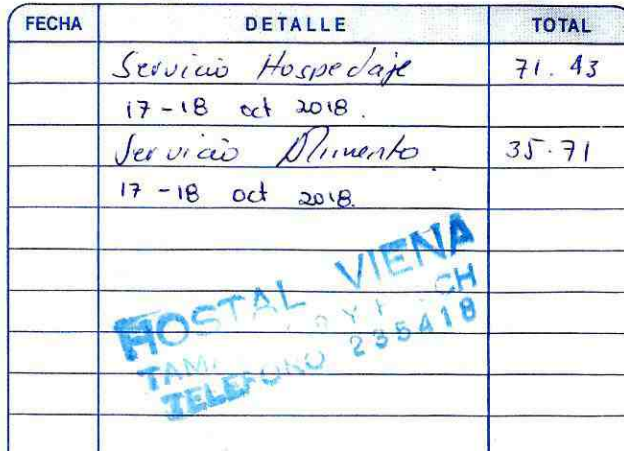 FECHA DETALLE TOTAL
Servicio Hospedaje 71.43
17-18 oct 2018.
Servicio Alimento 35.71
17-18 oct 2018.
HOSTAL VIENA
TELEFONO 235418